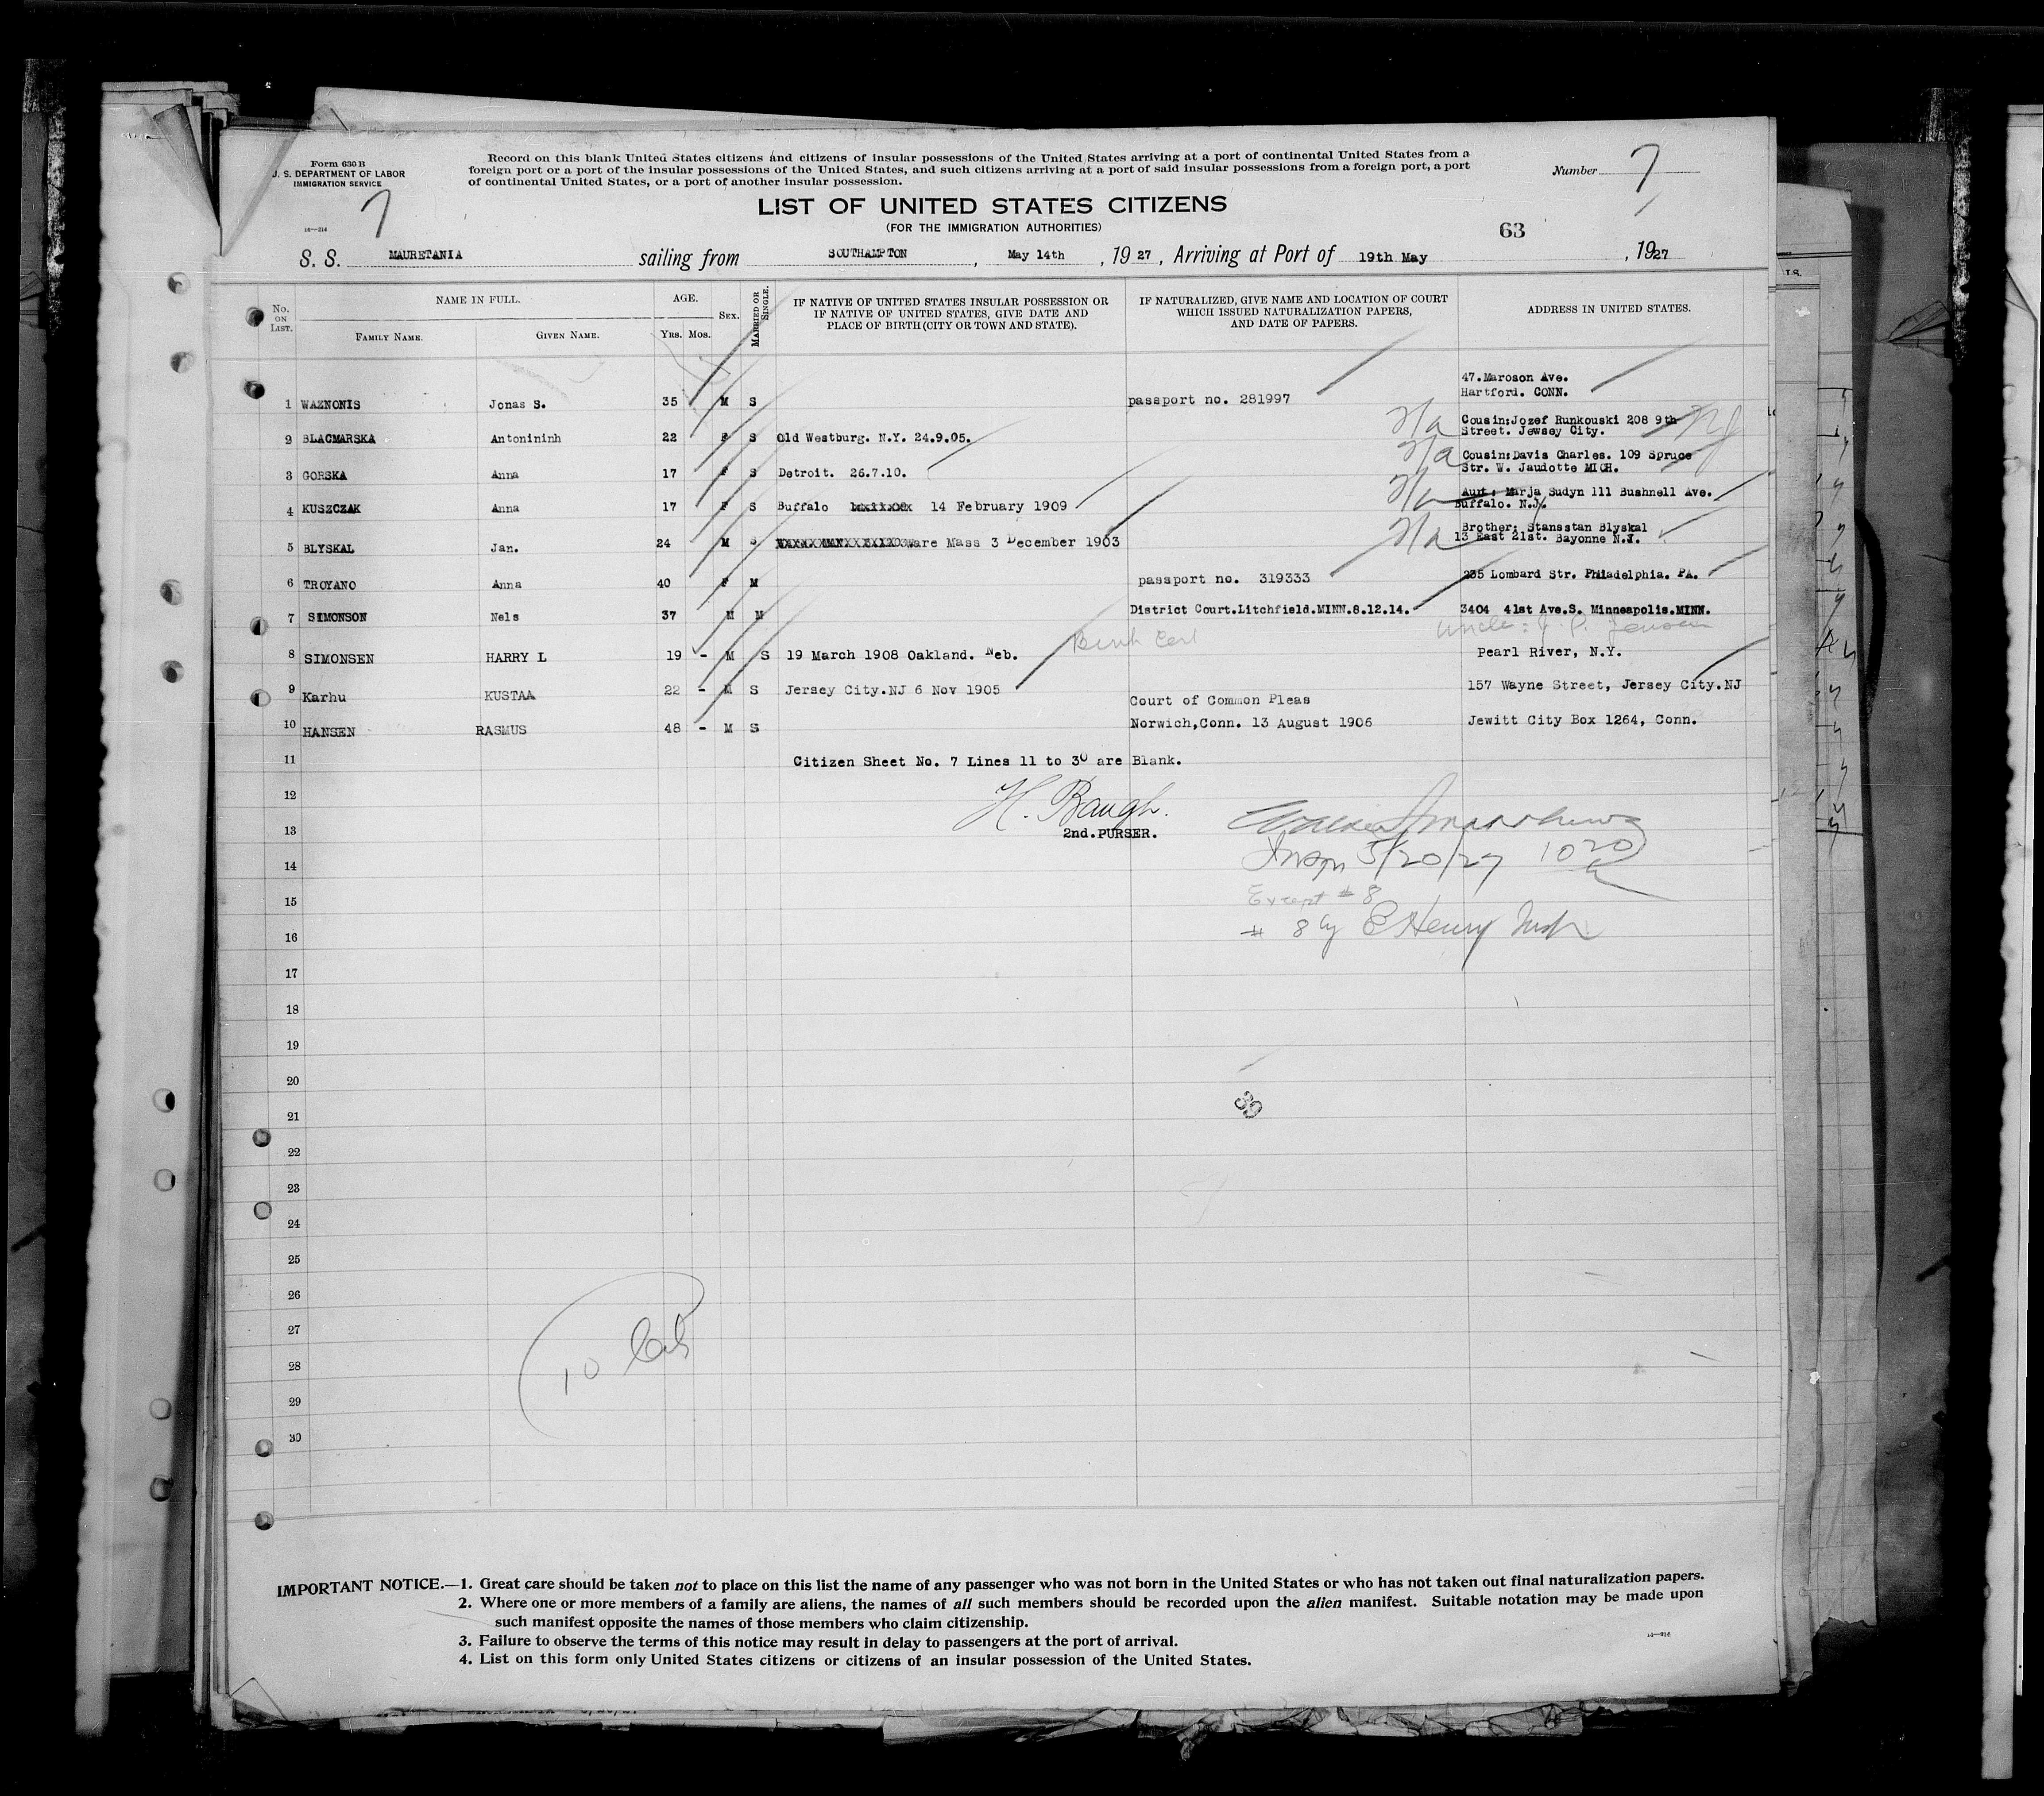 Form 630 B
U. S. DEPARTMENT OF LABOR
IMMIGRATION SERVICE
Record on this blank United States citizens and citizens of insular possessions of the United States arriving at a port of continental United States from a
foreign port or a port of the insular possessions of the United States, and such citizens arriving at a port of said insular possessions from a foreign port, a port
of continental United States, or a port of another insular possession.
Number 7
7
LIST OF UNITED STATES CITIZENS
(FOR THE IMMIGRATION AUTHORITIES)
63
14—214
S. S. MAURETANIA sailing from SOUTHAMPTON, May 14th, 1927, Arriving at Port of 19th May, 1927
No. ON LIST. NAME IN FULL. FAMILY NAME. GIVEN NAME. AGE. YRS. MOS. SEX. MARRIED OR SINGLE. IF NATIVE OF UNITED STATES INSULAR POSSESSION OR IF NATIVE OF UNITED STATES, GIVE DATE AND PLACE OF BIRTH (CITY OR TOWN AND STATE). IF NATURALIZED, GIVE NAME AND LOCATION OF COURT WHICH ISSUED NATURALIZATION PAPERS, AND DATE OF PAPERS. ADDRESS IN UNITED STATES.
1 WAZNONIS Jonas S. 35 M S passport no. 281997 47.Maroson Ave. Hartford. CONN.
2 BLACMARSKA Antonininh 22 F S Old Westburg. N.Y. 24.9.05. N/a Cousin:Jozef Runkouski 208 9th Street. Jewsey City. NJ
3 GORSKA Anna 17 F S Detroit. 26.7.10. N/a Cousin:Davis Charles. 109 Spruce Str. W. Jaudotte MICH.
4 KUSZCZAK Anna 17 F S Buffalo 14 February 1909 N/a Aunt: Marja Sudyn 111 Bushnell Ave. Buffalo. N.Y.
5 BLYSKAL Jan. 24 M S ware Mass 3 December 1903 N/a Brother: Stansstan Blyskal 13 East 21st. Bayonne N.J.
6 TROYANO Anna 40 F M passport no. 319333 235 Lombard Str. Philadelphia. PA.
7 SIMONSON Nels 37 M M District Court.Litchfield.MINN.8.12.14. 3404 41st Ave.S. Minneapolis.MINN.
8 SIMONSEN HARRY L 19 - M S 19 March 1908 Oakland. Neb. Birth Cert Uncle: J. P. Jensen Pearl River, N.Y.
9 Karhu KUSTAA 22 - M S Jersey City.NJ 6 Nov 1905 157 Wayne Street, Jersey City.NJ
10 HANSEN RASMUS 48 - M S Court of Common Pleas Norwich,Conn. 13 August 1906 Jewitt City Box 1264, Conn.
11 Citizen Sheet No. 7 Lines 11 to 30 are Blank.
12 H. Baugh.
13 2nd.PURSER.
14 Insp 5/20/27 1020
15 Except # 8
16 # 8 by E Henry Insp
17
18
19
20
21 39
22
23
24
25
26
27
28 10
29
30
IMPORTANT NOTICE.—1. Great care should be taken not to place on this list the name of any passenger who was not born in the United States or who has not taken out final naturalization papers.
2. Where one or more members of a family are aliens, the names of all such members should be recorded upon the alien manifest. Suitable notation may be made upon
such manifest opposite the names of those members who claim citizenship.
3. Failure to observe the terms of this notice may result in delay to passengers at the port of arrival.
4. List on this form only United States citizens or citizens of an insular possession of the United States.
14—214